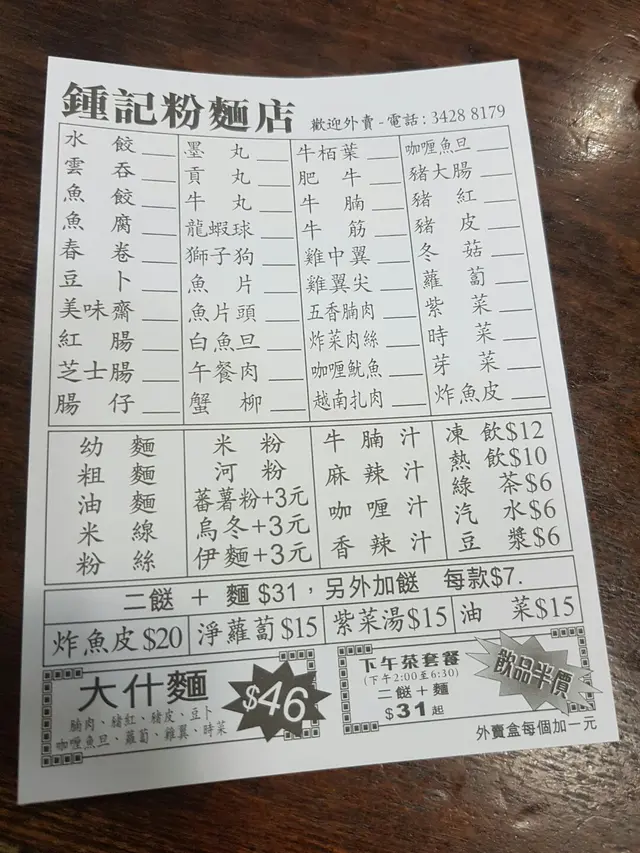 鍾記粉麵店
歡迎外賣-電話:3428 8179
水餃
雲吞
魚餃
魚腐
春卷
豆卜
美味齋
紅腸
芝士腸
腸仔
墨丸
貢丸
牛丸
龍蝦球
獅子狗
魚片
魚片頭
白魚旦
午餐肉
蟹柳
牛栢葉
肥牛
牛腩
牛筋
雞中翼
雞翼尖
五香腩肉
炸菜肉絲
咖喱魷魚
越南扎肉
咖喱魚旦
豬大腸
豬紅
豬皮
冬菇
蘿蔔
紫菜
時菜
芽菜
炸魚皮
幼麵
粗麵
油麵
米線
粉絲
米粉
河粉
蕃薯粉+3元
烏冬+3元
伊麵+3元
牛腩汁
麻辣汁
咖喱汁
香辣汁
凍飲$12
熱飲$10
綠茶$6
汽水$6
豆漿$6
二餸 + 麵 $31,另外加餸 每款$7.
炸魚皮$20
淨蘿蔔$15
紫菜湯$15
油菜$15
大什麵
$46
腩肉、豬紅、豬皮、豆卜
咖喱魚旦、蘿蔔、雞翼、時菜
下午茶套餐
(下午2:00至6:30)
二餸+麵
$31起
飲品半價
外賣盒每個加一元